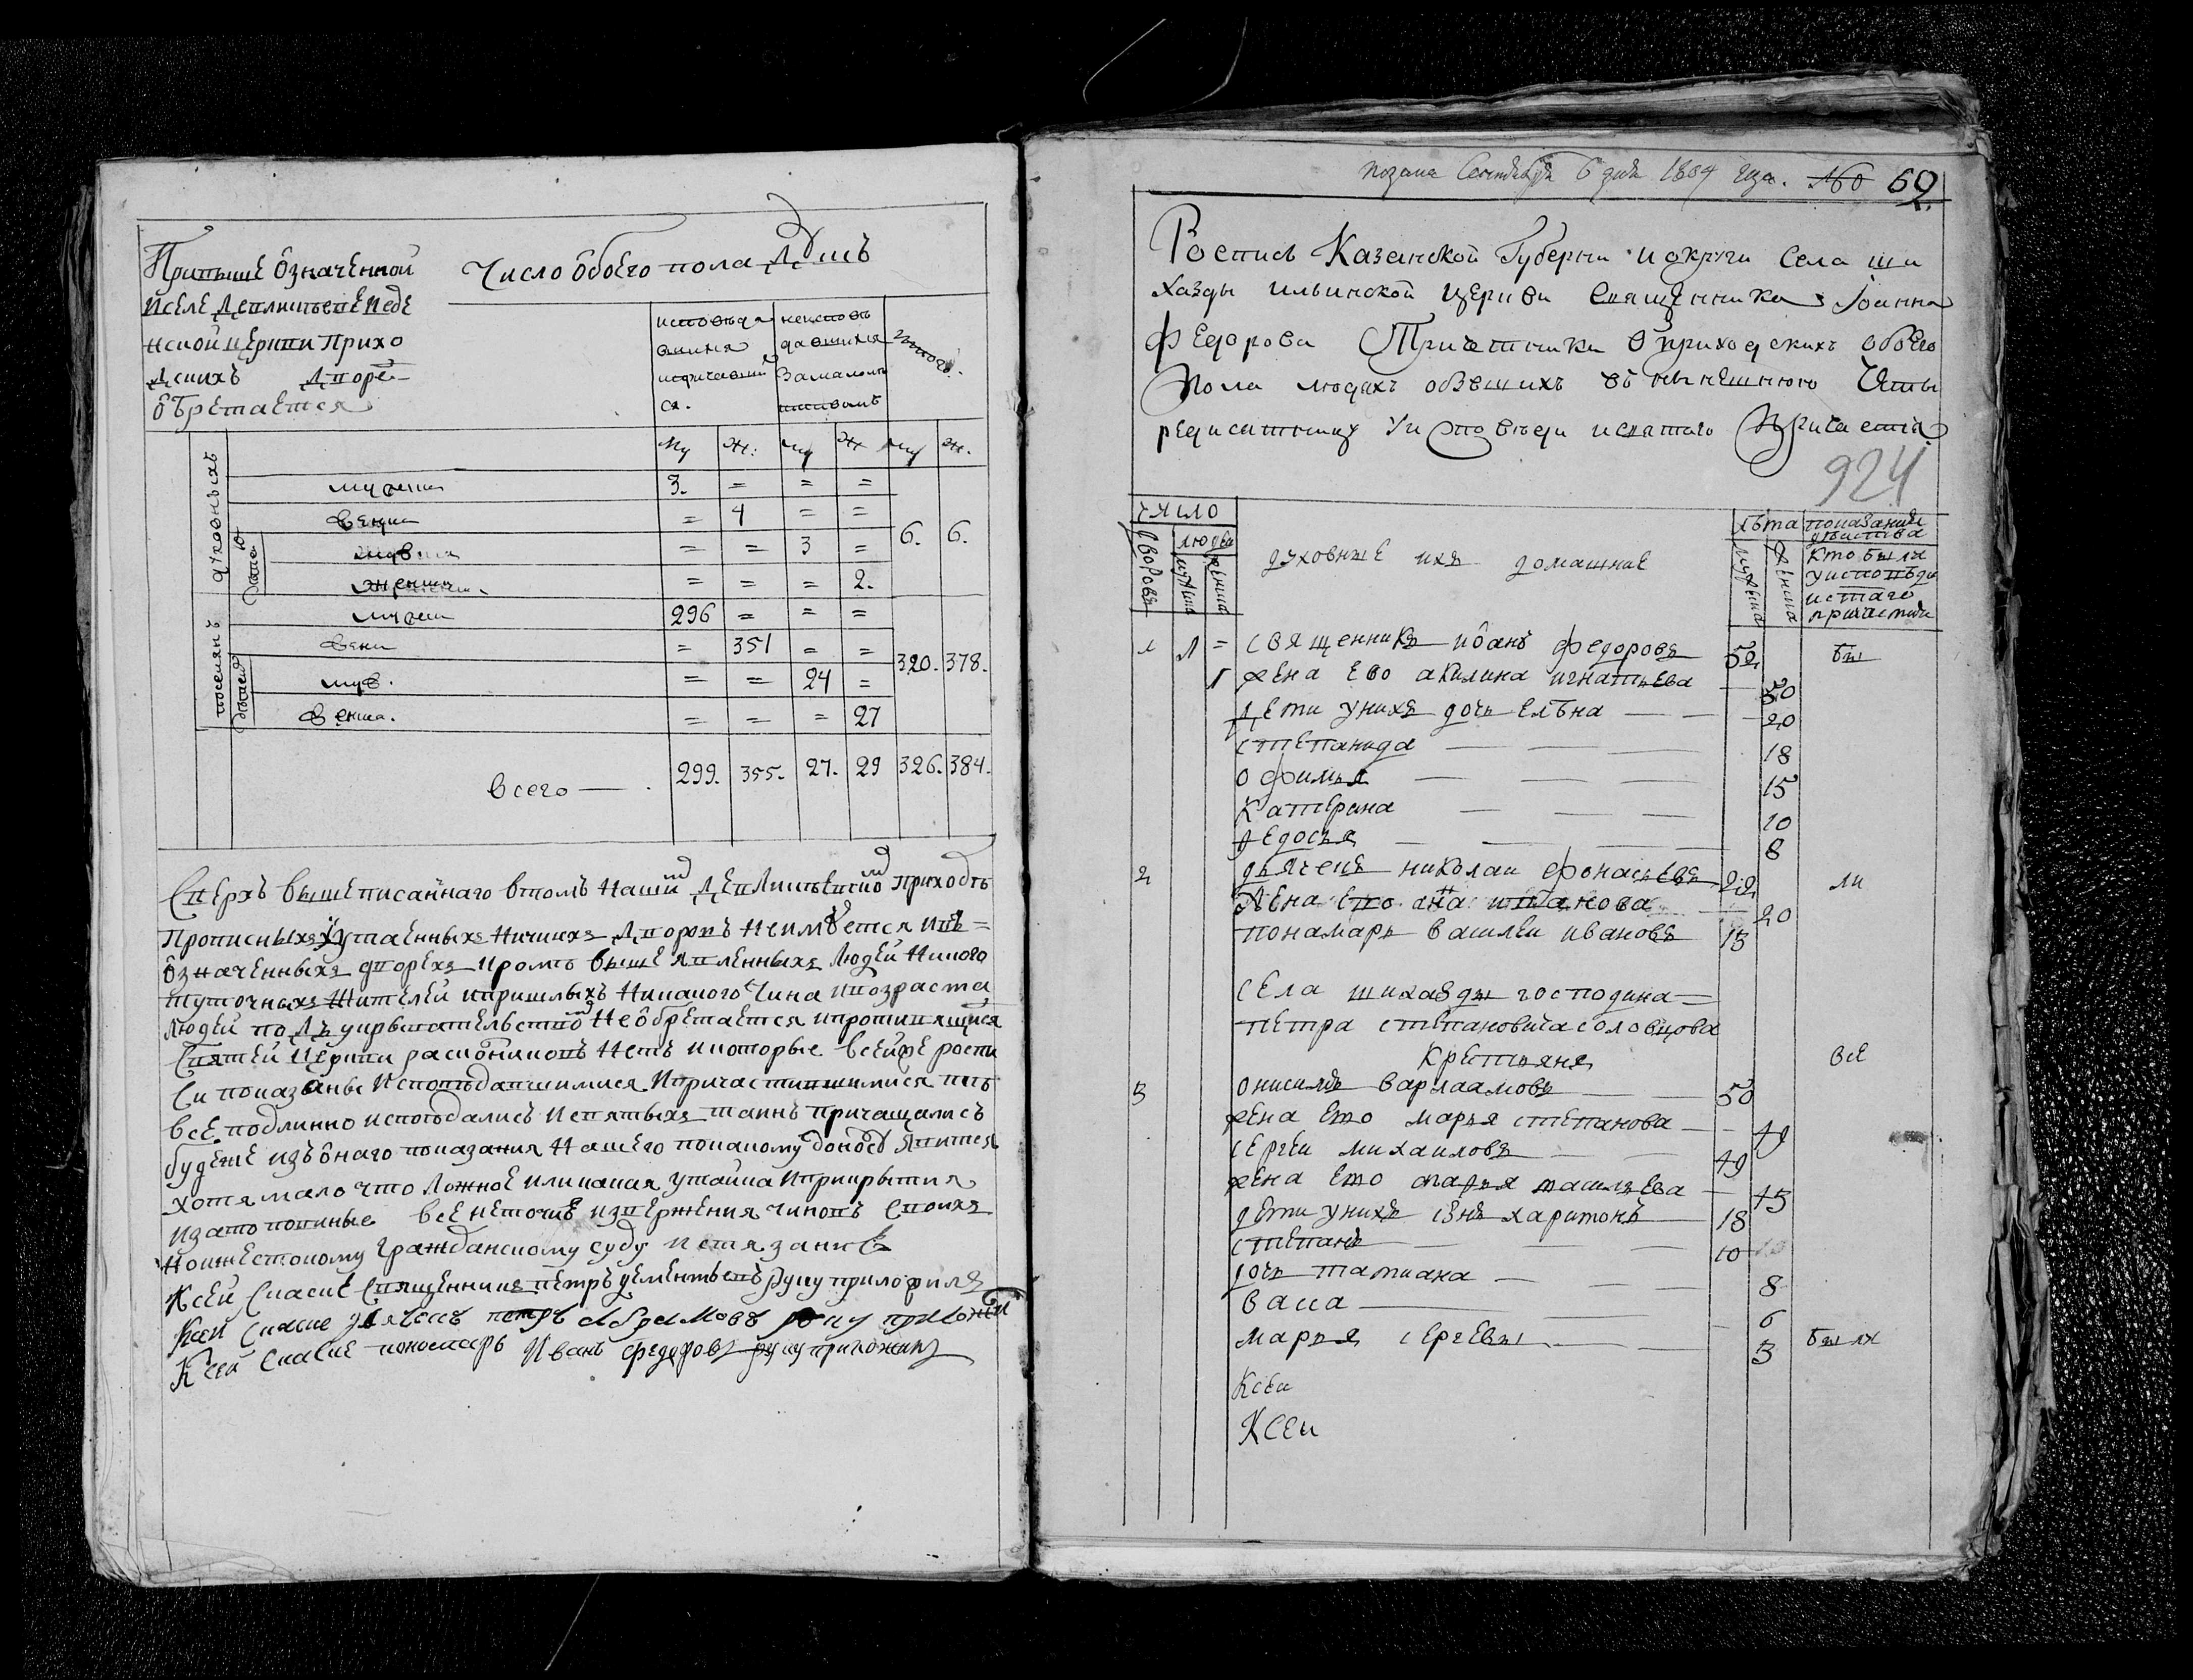 При выше означенной
и селе Девлитьеве Веде
нской церкви прихо
дскихъ дворе
обретается
Число обоего пола душъ
исповеда
вшихся
и причавши
ся.
неисповъ
давшихся
за малолет
ствомъ
итого.
му ж. му ж му ж.
духовныхъ
мужеска 3. = = =
женска = 4 = = 6. 6.
мужеска = = 3 =
женска = = = 2.
поселянъ
мужеск 296 = = =
женск = 351 = = 320. 378.
муж. = = 24 =
женска. = = = 27
всего — 299. 355. 27. 29 326. 384.
Сверхъ вышеписаннаго втомъ нашем приходъ
прописныхъ утаенныхъ ничиихъ дворовъ неимеется и въ =
означенныхъ дворехъ кроме выше явленныхъ людей никого
туточныхъ жителей и пришлыхъ никакого чина и возраста
людей по укрывательство не обретается и противящихся
святей церкви расколниковъ нетъ и которые всей же роспи
си показаны исповедавшимися и причастившимися те
все подлинно исповедались и святыхъ таинъ причащались
будеже изъ онаго показания нашего по какому доносу явится
хотя мало что ложное или какая утайка и прикрытия
и за то повинные все не точие извержения чиновъ своихъ
но и жестокому гражданскому суду и стязанию
Ксей скаске священникъ петръ дементьевъ руку приложилъ
Ксей скаске дьячекъ петръ абрамовъ руку приложил
Ксей скаске понамарь Иванъ федоровъ руку приложилъ
Сентября 6 дня 1804 года. № 69.
Роспись Казанской Губерни и округи Села ши
хазды ильинской церкви священника Иоанна
Федорова Причетники о приходскихъ обоего
пола людахъ обвешихъ въ нынешнюю Четы
редисатницу у исповеди и скатаго причастия
924
число
дворовъ
людеи
мужска
женска
духовные ихъ домашние
лета
мужска
женска
показание
действа
кто были
у исповеди
и стаго
причастия
1 1 = священникъ иоанъ федоровъ 52 бы
1 жена ево акилина игнатьева — 50
дети унихъ дочь елена — — — 20
степанида — — — 18
офимья — — — 15
катерина — — — 10
федосья — — — 8
2 дьячекъ николаи фонасьевъ 22 ли
жена ево анна иванова — 20
понамарь василеи ивановъ 18
села шихазды господина =
петра степановича соловцова
крестьяня все
3 онисимъ варлаамовъ — — 50
жена ево марья степанова — — 49
сергеи михаиловъ — — 49
жена ево марья васильева — 45
дети унихъ сынъ харитонъ — 18
степанъ — — — 10
дочь татиана — — 8
васса — — 6
марья сергевы — — 3 были
Ксеи
Ксеи